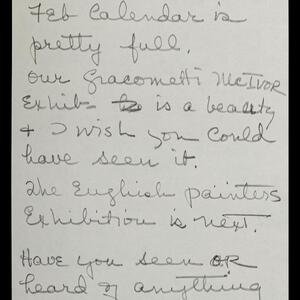 Feb Calendar is
pretty full.
Our Giacometti McIvor
Exhib- is a beauty
& I wish you could
have seen it.
The English painters
Exhibition is next.
Have you seen OR
heard of anything